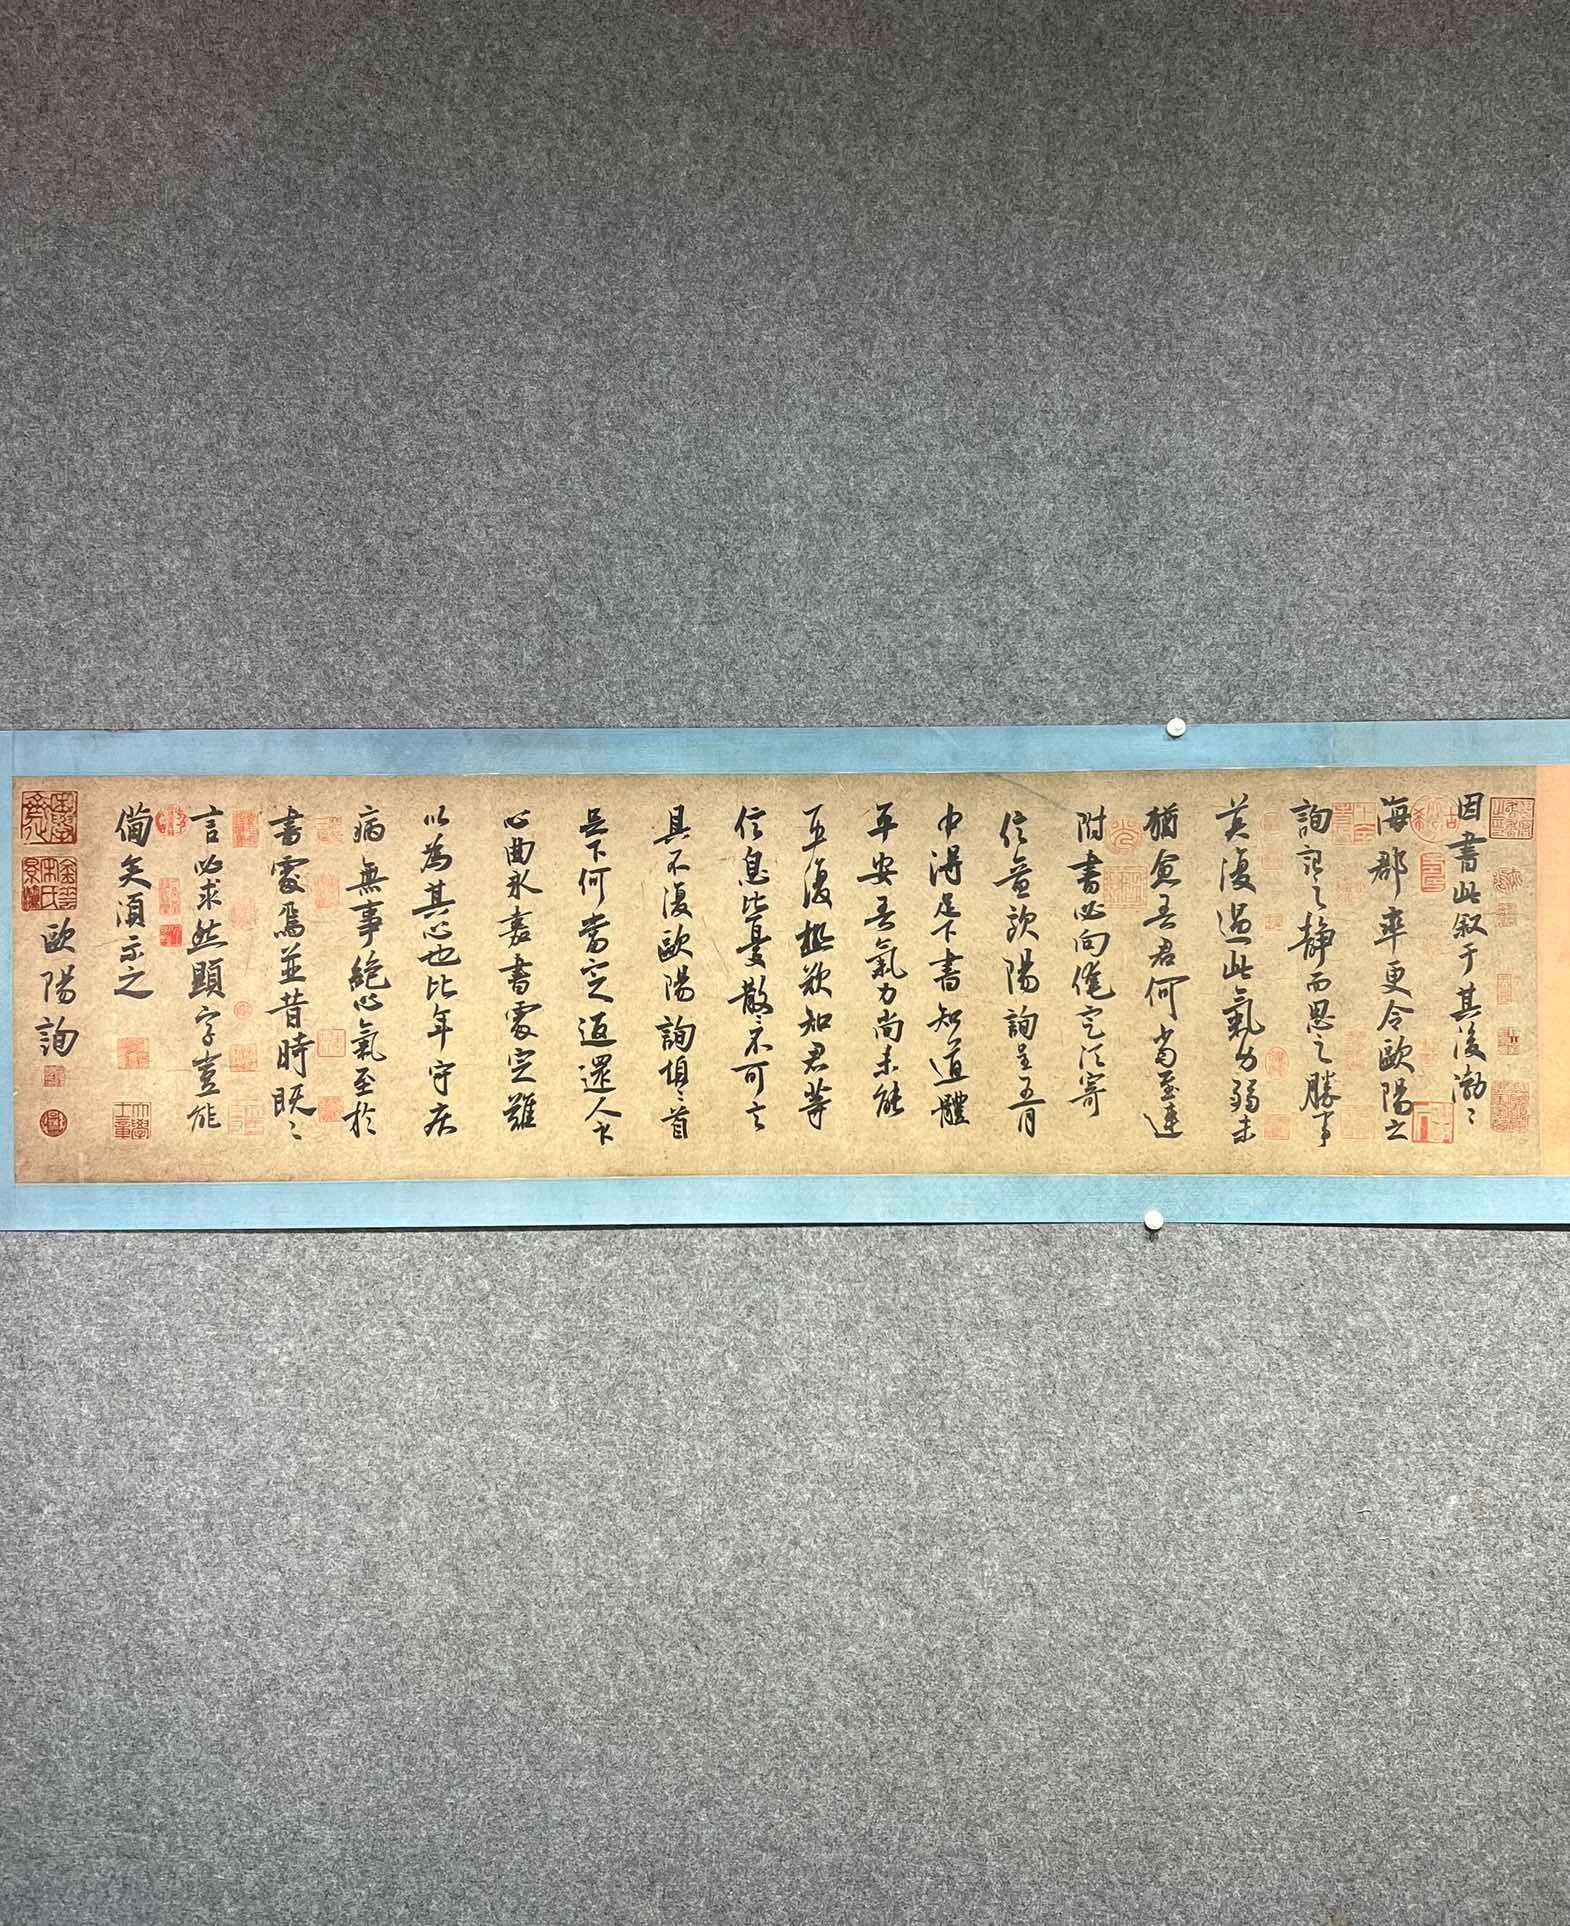 因書此叙于其後渤〻
海郡率更令歐陽之
詢 之静而思之勝事
莫復過此氣力弱未
猶愈吾君何當至速
附書必向 定 寄
信 歐陽詢呈五月
中得足下書知道體
平安吾氣力尚未能
復 欲知君等
信息比憂散不可言
具不復歐陽詢 首
足下何當定返還人下
心曲永嘉書處定難
以為其心也比年守疾
病無事絕心氣至於
書處焉並昔時既〻
言必求然顯字豈能
備矣須示之
歐陽詢